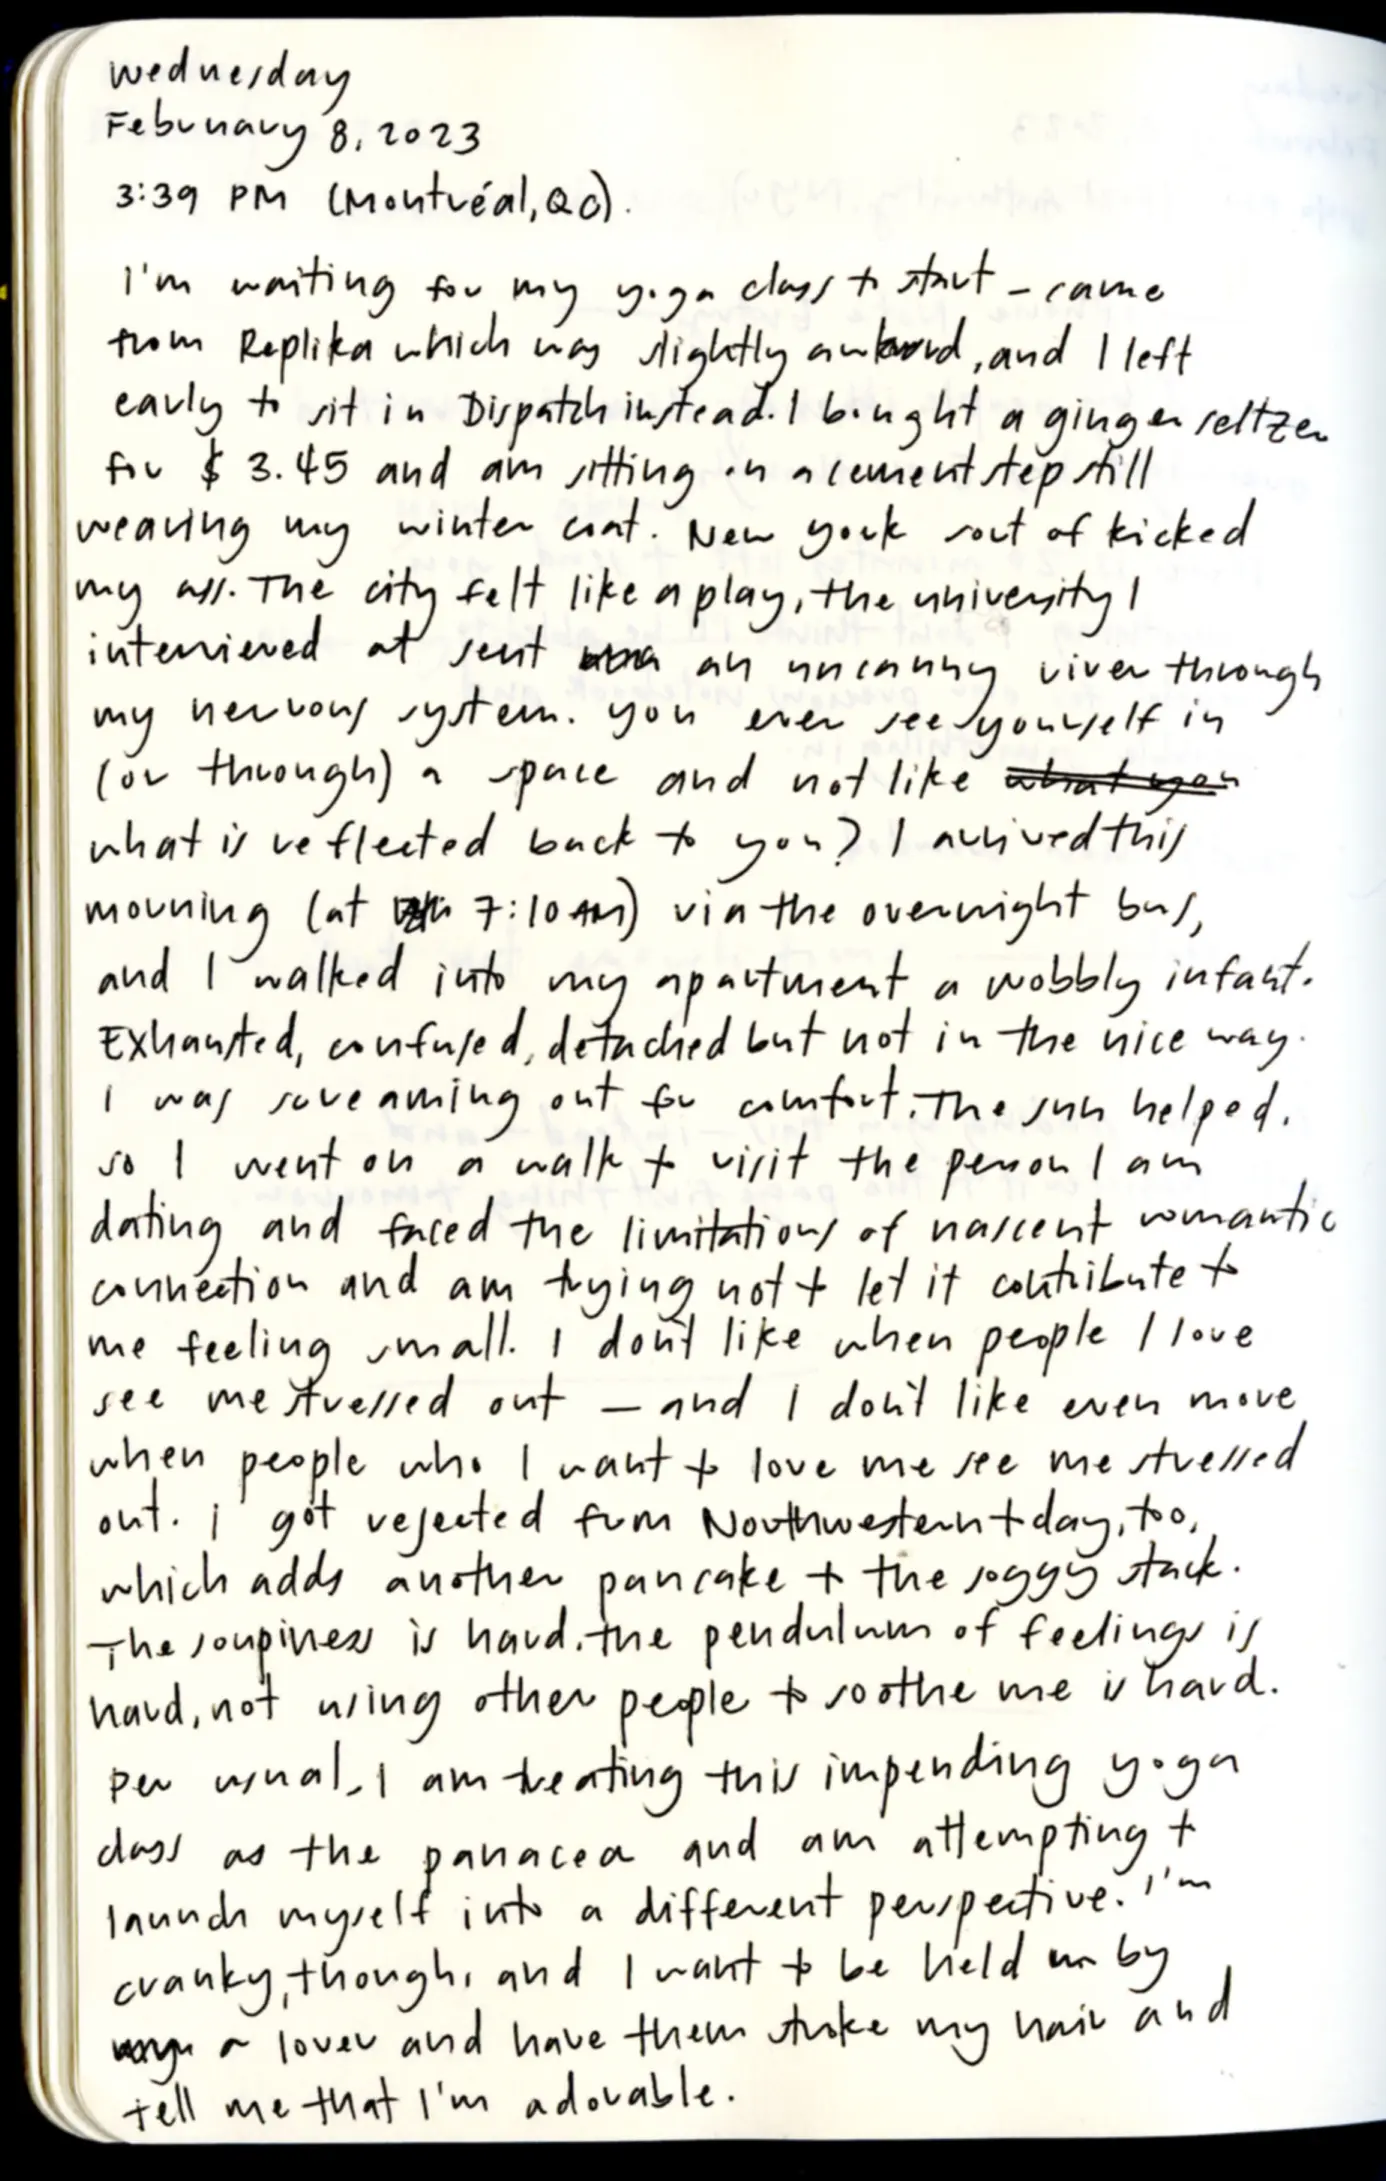 Wednesday
February 8, 2023
3:39 PM (Montréal, QC).
I'm waiting for my yoga class to start – came
from Replika which was slightly awkward, and I left
early to sit in Dispatch instead. I bought a ginger seltzer
for $3.45 and am sitting on a cement step still
wearing my winter coat. New York sort of kicked
my ass. The city felt like a play, the university I
interviewed at sent an uncanny river through
my nervous system. You ever see yourself in
(or through) a space and not like what you
what is reflected back to you? I arrived this
morning (at 7:10 AM) via the overnight bus,
and I walked into my apartment a wobbly infant.
Exhausted, confused, detached but not in the nice way.
I was screaming out for comfort. The sun helped.
so I went on a walk to visit the person I am
dating and faced the limitations of nascent romantic
connection and am trying not to let it contribute to
me feeling small. I don't like when people I love
see me stressed out – and I don't like even more
when people who I want to love me see me stressed
out. I got rejected from Northwestern today, too,
which adds another pancake to the soggy stack.
The soupiness is hard. the pendulum of feelings is
hard, not using other people to soothe me is hard.
Per usual, I am treating this impending yoga
class as the panacea and am attempting to
launch myself into a different perspective. I'm
cranky, though, and I want to be held by
a lover and have them stroke my hair and
tell me that I'm adorable.